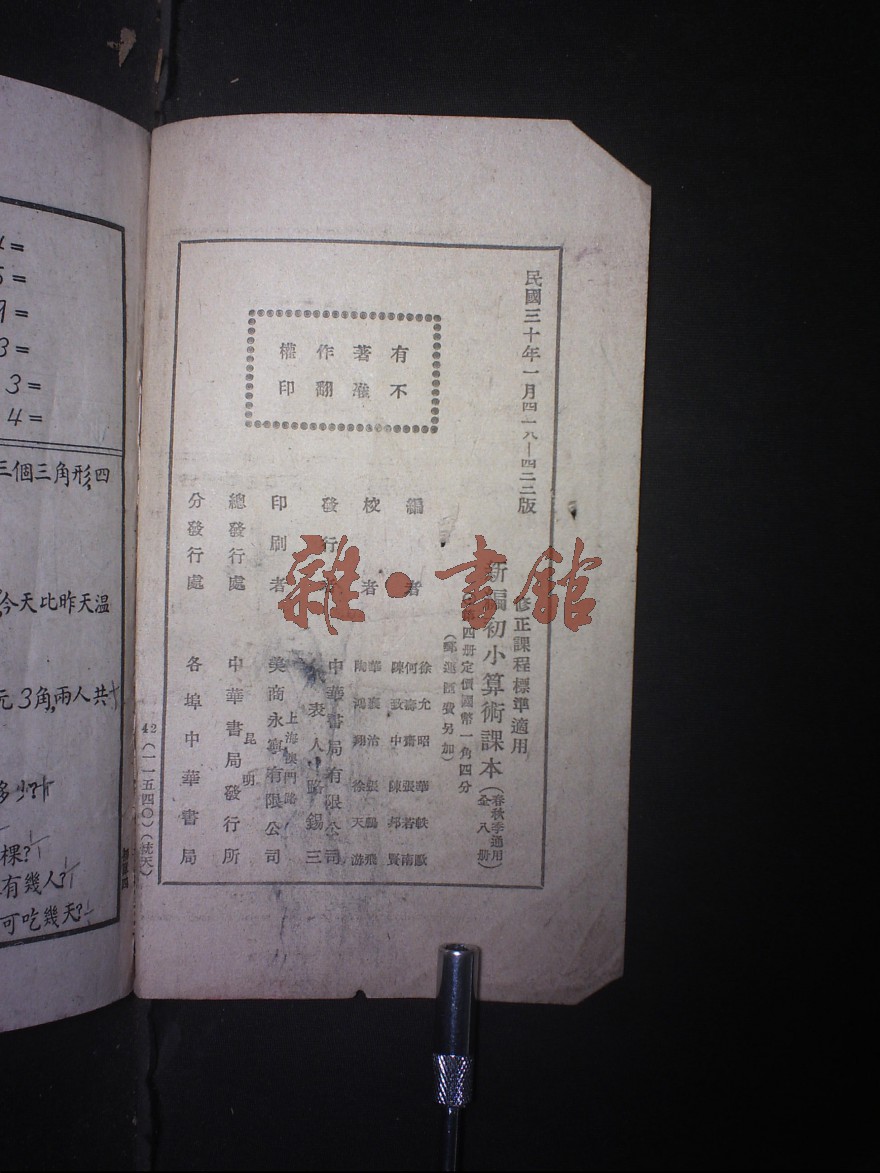 民國三十年一月四一八—四二二版
修正課程標準適用
新編初小算術課本
(春秋季通用
全八册)
第四册定價國幣一角四分
(郵運匯費另加)
有著作權
不准翻印
編者
徐允昭
華軼歐
何海齋
張若南
陳致中
陳邦賢
校者
華襄治
張鵬飛
陶鴻翔
徐天游
發行者
中華書局有限公司
代表人路錫三
印刷者
上海澳門路
美商永寧有限公司
總發行處
昆明
中華書局發行所
分發行處
各埠中華書局
42
(一一五四〇)(統天)
雜·書館
4=
5=
9=
3=
3=
4=
三個三角形,四
今天比昨天溫
元3角,兩人共
多少?
棵?
有幾人?
可吃幾天?